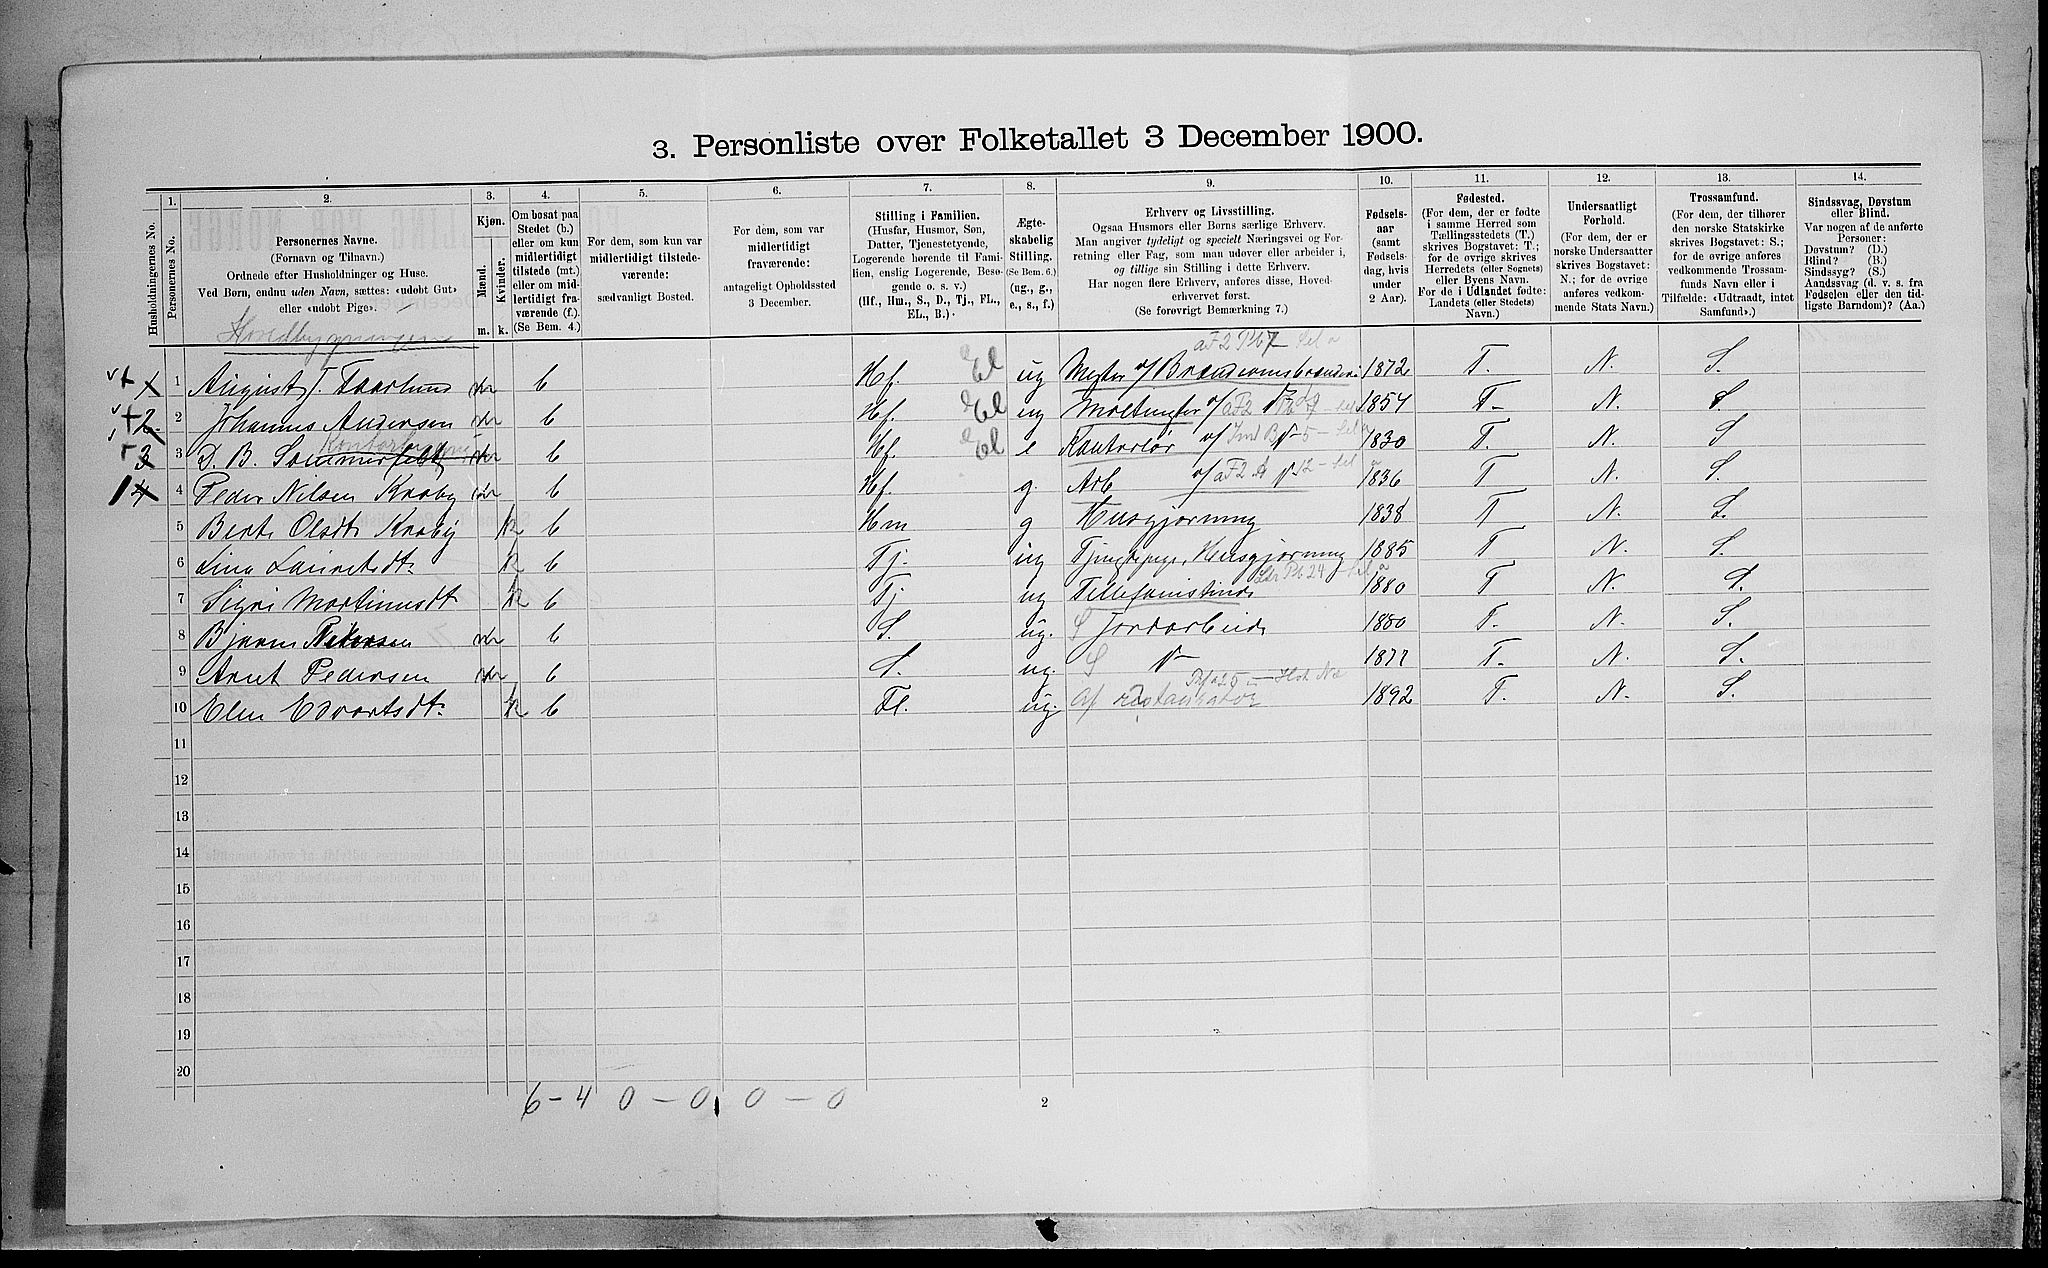 3. Personliste over Folketallet 3 December 1900.
Husholdningernes No.
1.
Personernes No.
2.
Personernes Navne.
(Fornavn og Tilnavn.)
Ordnede efter Husholdninger og Huse.
Ved Børn, endnu uden Navn, sættes: «udøbt Gut»
eller «udøbt Pige».
3.
Kjøn.
Mænd.
Kvinder.
m. k.
4.
Om bosat paa
Stedet (b.)
eller om kun
midlertidigt
tilstede (mt.)
eller om mid-
lertidigt fra-
værende (f.).
(Se Bem. 4.)
5.
For dem, som kun var
midlertidigt tilstede-
værende:
sædvanligt Bosted.
6.
For dem, som var
midlertidigt
fraværende:
antageligt Opholdssted
3 December.
7.
Stilling i Familien.
(Husfar, Husmor, Søn,
Datter, Tjenestetyende,
Logerende hørende til Fami-
lien, enslig Logerende, Besø-
gende o. s. v.)
(Hf., Hm., S., D., Tj., FL.,
EL., B.)
8.
Ægte-
skabelig
Stilling.
(Se Bem. 6.)
(ug., g.,
e., s., f.)
9.
Erhverv og Livsstilling.
Ogsaa Husmors eller Børns særlige Erhverv.
Man angiver tydeligt og specielt Næringsvei og For-
retning eller Fag, som man udøver eller arbeider i,
og tillige sin Stilling i dette Erhverv.
Har nogen flere Erhverv, anføres disse, Hoved-
erhvervet først.
(Se forøvrigt Bemærkning 7.)
10.
Fødsels-
aar
(samt
Fødsels-
dag, hvis
under
2 Aar).
11.
Fødested.
(For dem, der er fødte
i samme Herred som
Tællingsstedets (T.)
skrives Bogstavet: T.;
for de øvrige skrives
Herredets (eller Sognets)
eller Byens Navn.
For de i Udlandet fødte:
Landets (eller Stedets)
Navn.)
12.
Undersaatligt
Forhold.
(For dem, der er
norske Undersaatter
skrives Bogstavet:
N.; for de øvrige
anføres vedkom-
mende Stats Navn.)
13.
Trossamfund.
(For dem, der tilhører
den norske Statskirke
skrives Bogstavet: S.;
for de øvrige anføres
vedkommende Trossam-
funds Navn eller i
Tilfælde: «Udtraadt, intet
Samfund».)
14.
Sindssvag, Døvstum
eller Blind.
Var nogen af de anførte
Personer:
Døvstum? (D.)
Blind? (B.)
Sindssyg? (S.)
Aandssvag (d. v. s. fra
Fødselen eller den tid-
ligste Barndom)? (Aa.)
Hovedbygningen
1 August J. Taarlund b Hf. El ug 1872 T. N. S.
2 2 Johannes Andersen b Hf. El ug 1854 T. N. S.
Kontorbygning
3 3 D. B. Sommerfeldt b Hf. El e Kontorist 1830 T. N. S
4 4 Peder Nilsen Kraby b Hf. g. Arb 1836 T N. S.
5 Berte Olsdt. Kraby k b Hm g Husgjørning 1838 T N. S.
6 Lina Lauritsdt. k b Tj. ug Husgjørning 1885 T N. S.
7 Sigri Martinusdt k b Tj ug Tillefonistinde 1880 T N. S.
8 Bjarne Pedersen b S. ug. S Jordarbeide 1880 T. N. S.
9 Arnt Pedersen b S. ug. S 1877 T. N. S.
10 Elen Edvartsdt. k b Fl. ug. 1892 T. N. S.
11
12
13
14
15
16
17
18
19
20
6 - 4 0 - 0 0 - 0
2